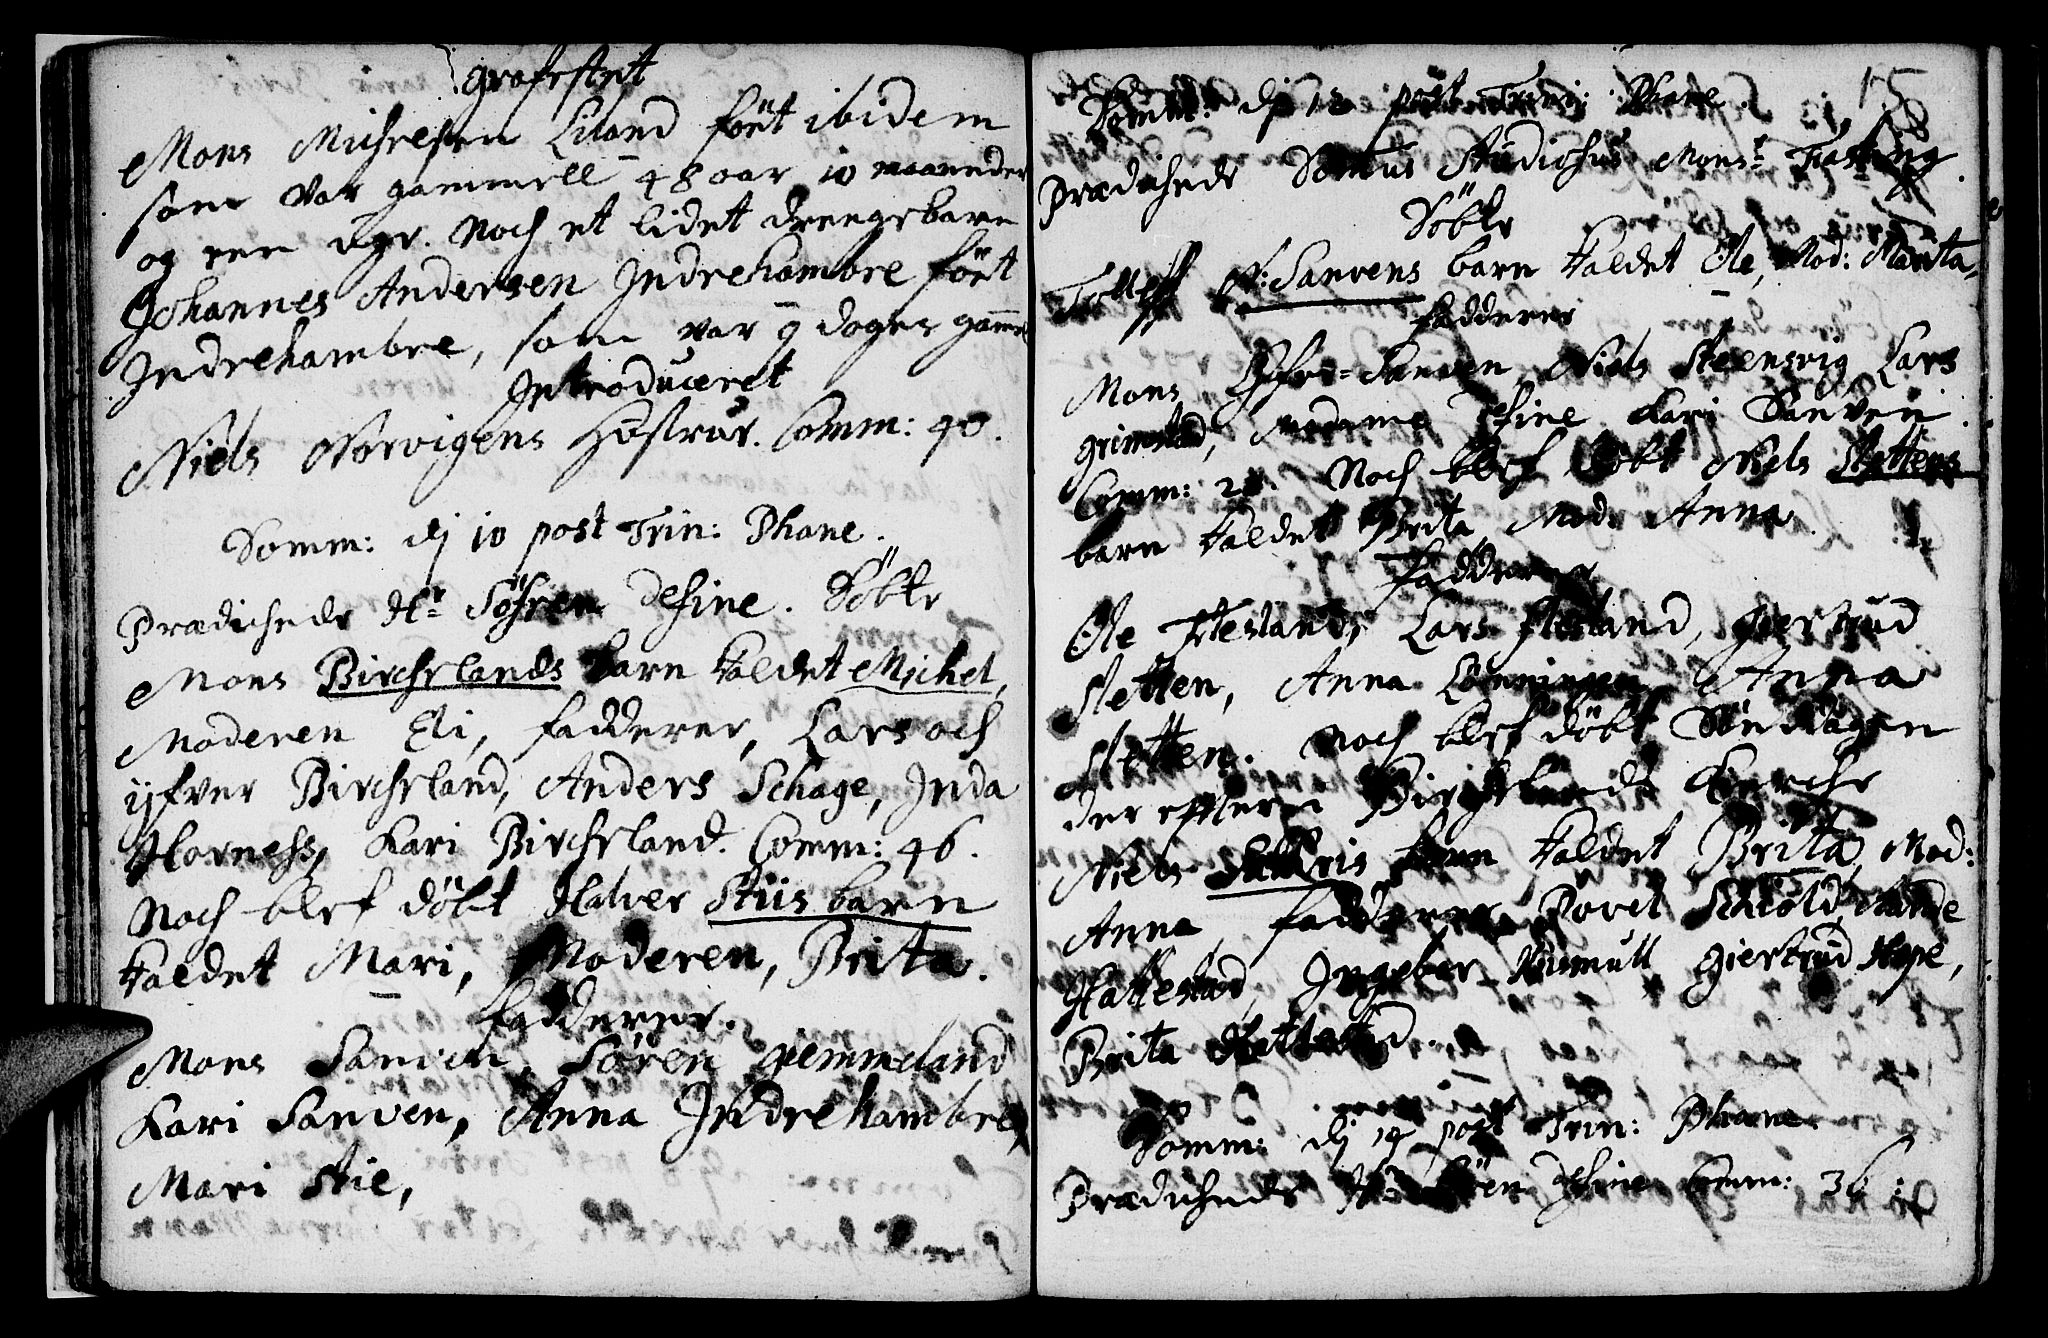 grafestet
Mons Michelsen Liland föet ibidem
som var gammell 48 aar 10 maaneder
og een uge. Noch et lidet drengebarn
Johannes Andersen Indrehambre föet
Indrehambre, som var 9 dages gammel
Introduceret
Niels Norvigens Höstrue. Comm: 40.
Domm: dj 10 post Trin: Phane.
Prædichede Hr Söfren Desine. Döbte
Mons Birchelands barn kaldet Michel,
Moderen Eli, fadderer, Lars och
iyfver Bircheland, Anders Schage, Inda
Harness, Kari Bircheland. Comm: 46.
Noch blef döbt Halver Stiis barn
kaldet Mari, Moderen, Brita.
fadderer.
Mons Sanven, Sören giemmeland
Kari Sanven, Anna Indrehambre,
Mari Stie,
15
Domm: dj 12 post Trin: Phane.
Prædichede Domus Studiosus Monsr Fasting.
Döbte
N: Sanvens barn kaldet Ole, Mod: Marita,
fadderer
Mons Sanven, Niels Steensvig, Lars
grimstad, Madame Desine Kari Sanven.
Comm: 28. Noch blef döbt Niels Slettens
barn kaldet Brita, Mod: Anna.
fadderer
Ole Flesland, Lars flesland, giertrud
Sletten, Anna Lönningen, Anna
Sletten. Noch blef döbt Söndagen
der effter i Birchelands Kirche
Niels barn kaldet Brita, Mod:
Anna, fadderer, Povel Schiold,
Hattestad, Ingebor giertrud Hope,
Brita Hattestad.
Domm: dj 14 post Trin: Phane.
Prædichede Hr Sören Desine Comm: 36.